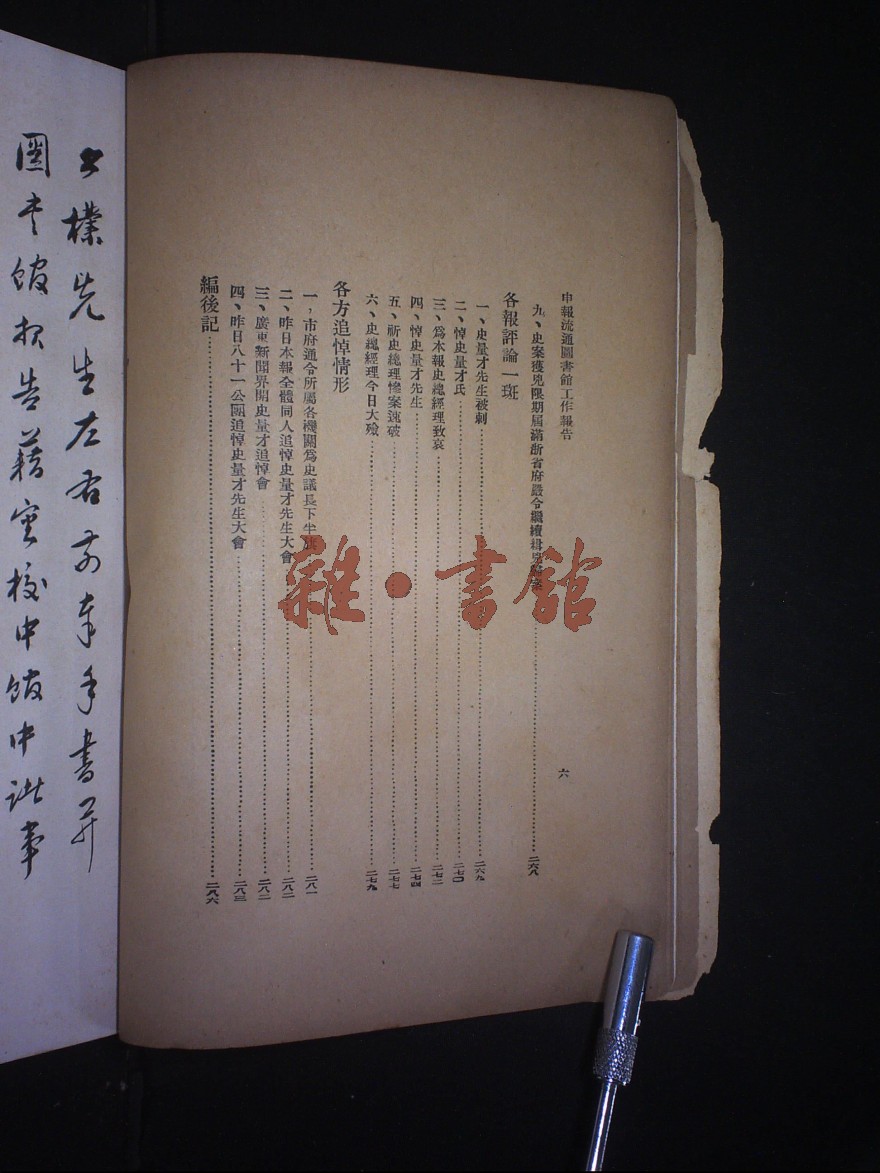 申報流通圖書館工作報告
六
九、史案獲兇限期屆滿浙省府嚴令繼續緝兇……二六八
各報評論一斑
一、史量才先生被刺……二六九
二、悼史量才氏……二七〇
三、爲本報史總經理致哀……二七二
四、悼史量才先生……二七四
五、祈史總理慘案速破……二七七
六、史總經理今日大殮……二七九
各方追悼情形
一，市府通令所屬各機關爲史議長下半旗……二八一
二、昨日本報全體同人追悼史量才先生大會……二八二
三、廣東新聞界開史量才追悼會……二八二
四、昨日八十一公團追悼史量才先生大會……二八三
編後記……二八六
雜·書館
樸先生左右前奉手書并
圖書館報告藉審校中館中諸事